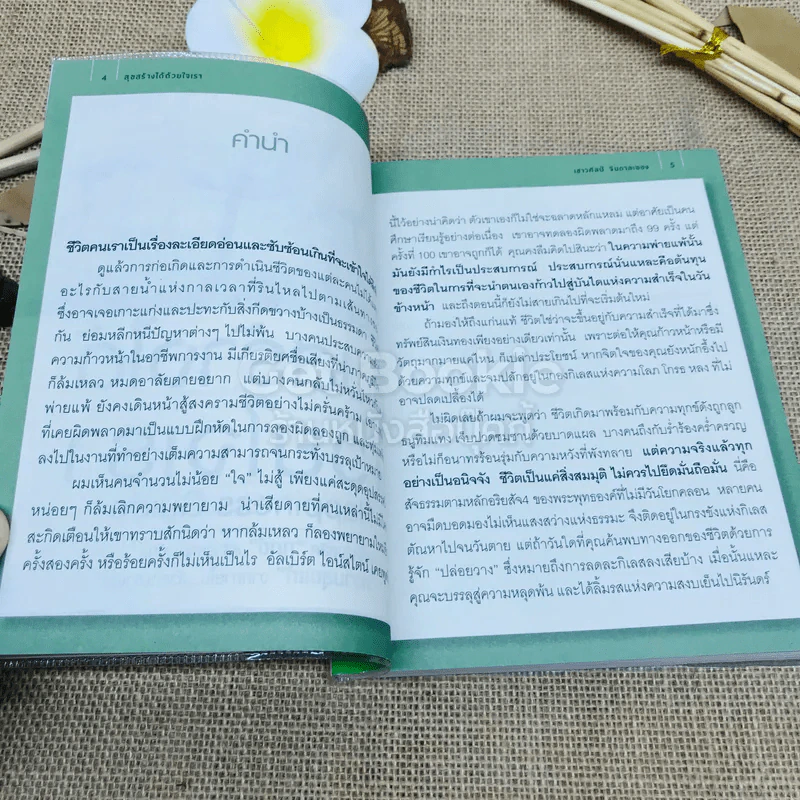 4 สุขสร้างได้ด้วยใจเรา
คำนำ
ชีวิตคนเราเป็นเรื่องละเอียดอ่อนและซับซ้อนเกินที่จะเข้าใจได้
ดูแล้วการก่อเกิดและการดำเนินชีวิตของแต่ละคน
อะไรกับสายน้ำแห่งกาลเวลาที่รินไหลไปตามเส้นทาง
ซึ่งอาจเจอเกาะแก่งและปะทะกับสิ่งกีดขวางบ้างเป็นธรรมดา
กัน ย่อมหลีกหนีปัญหาต่างๆ ไปไม่พ้น บางคนประสบ
ความก้าวหน้าในอาชีพการงาน มีเกียรติยศชื่อเสียงที่น่า
ก็ล้มเหลว หมดอาลัยตายอยาก แต่บางคนกลับไม่หวั่นไหว
พ่ายแพ้ ยังคงเดินหน้าสู้สงครามชีวิตอย่างไม่ครั่นคร้าม
ที่เคยผิดพลาดมาเป็นแบบฝึกหัดในการลองผิดลองถูก และทุ่มเท
ลงไปในงานที่ทำอย่างเต็มความสามารถจนกระทั่งบรรลุเป้าหมาย
ผมเห็นคนจำนวนไม่น้อย “ใจ” ไม่สู้ เพียงแค่สะดุดอุปสรรค
หน่อยๆ ก็ล้มเลิกความพยายาม น่าเสียดายที่คนเหล่านี้ไม่มี
สะกิดเตือนให้เขาทราบสักนิดว่า หากล้มเหลว ก็ลองพยายามใหม่
ครั้งสองครั้ง หรือร้อยครั้งก็ไม่เห็นเป็นไร อัลเบิร์ต ไอน์สไตน์ เคยพูด
เสาวศิลป์ จินดาละออง 5
นี้ไว้อย่างน่าคิดว่า ตัวเขาเองก็ไม่ใช่จะฉลาดหลักแหลม แต่อาศัยเป็นคน
ศึกษาเรียนรู้อย่างต่อเนื่อง เขาอาจทดลองผิดพลาดมาถึง 99 ครั้ง แต่
ครั้งที่ 100 เขาอาจถูกก็ได้ คุณคงลืมคิดไปสินะว่า ในความพ่ายแพ้นั้น
มันยังมีกำไรเป็นประสบการณ์ ประสบการณ์นั่นแหละคือต้นทุน
ของชีวิตในการที่จะนำตนเองก้าวไปสู่บันไดแห่งความสำเร็จในวัน
ข้างหน้า และถึงตอนนี้ก็ยังไม่สายเกินไปที่จะเริ่มต้นใหม่
ถ้ามองให้ถึงแก่นแท้ ชีวิตใช่ว่าจะขึ้นอยู่กับความสำเร็จที่ได้มาซึ่ง
ทรัพย์สินเงินทองเพียงอย่างเดียวเท่านั้น เพราะต่อให้คุณก้าวหน้าหรือมี
วัตถุมากมายแค่ไหน ก็เปล่าประโยชน์ หากจิตใจของคุณยังหนักอึ้งไป
ด้วยความทุกข์และจมปลักอยู่ในกองกิเลสแห่งความโลภ โกรธ หลง ที่ไม่
อาจปลดเปลื้องได้
ไม่ผิดเลยถ้าผมจะพูดว่า ชีวิตเกิดมาพร้อมกับความทุกข์ดังถูกลูก
ธนูทิ่มแทง เจ็บปวดซมซานด้วยบาดแผล บางคนถึงกับร่ำร้องคร่ำครวญ
หรือไม่ก็อนาทรร้อนรุ่มกับความหวังที่พังทลาย แต่ความจริงแล้วทุก
อย่างเป็นอนิจจัง ชีวิตเป็นแค่สิ่งสมมุติ ไม่ควรไปยึดมั่นถือมั่น นี่คือ
สัจธรรมตามหลักอริยสัจ4 ของพระพุทธองค์ที่ไม่มีวันโยกคลอน หลายคน
อาจมืดบอดมองไม่เห็นแสงสว่างแห่งธรรมะ จึงติดอยู่ในกรงขังแห่งกิเลส
ตัณหาไปจนวันตาย แต่ถ้าวันใดที่คุณค้นพบทางออกของชีวิตด้วยการ
รู้จัก “ปล่อยวาง” ซึ่งหมายถึงการลดละกิเลสลงเสียบ้าง เมื่อนั้นแหละ
คุณจะบรรลุสู่ความหลุดพ้น และได้ลิ้มรสแห่งความสงบเย็นไปนิรันดร์